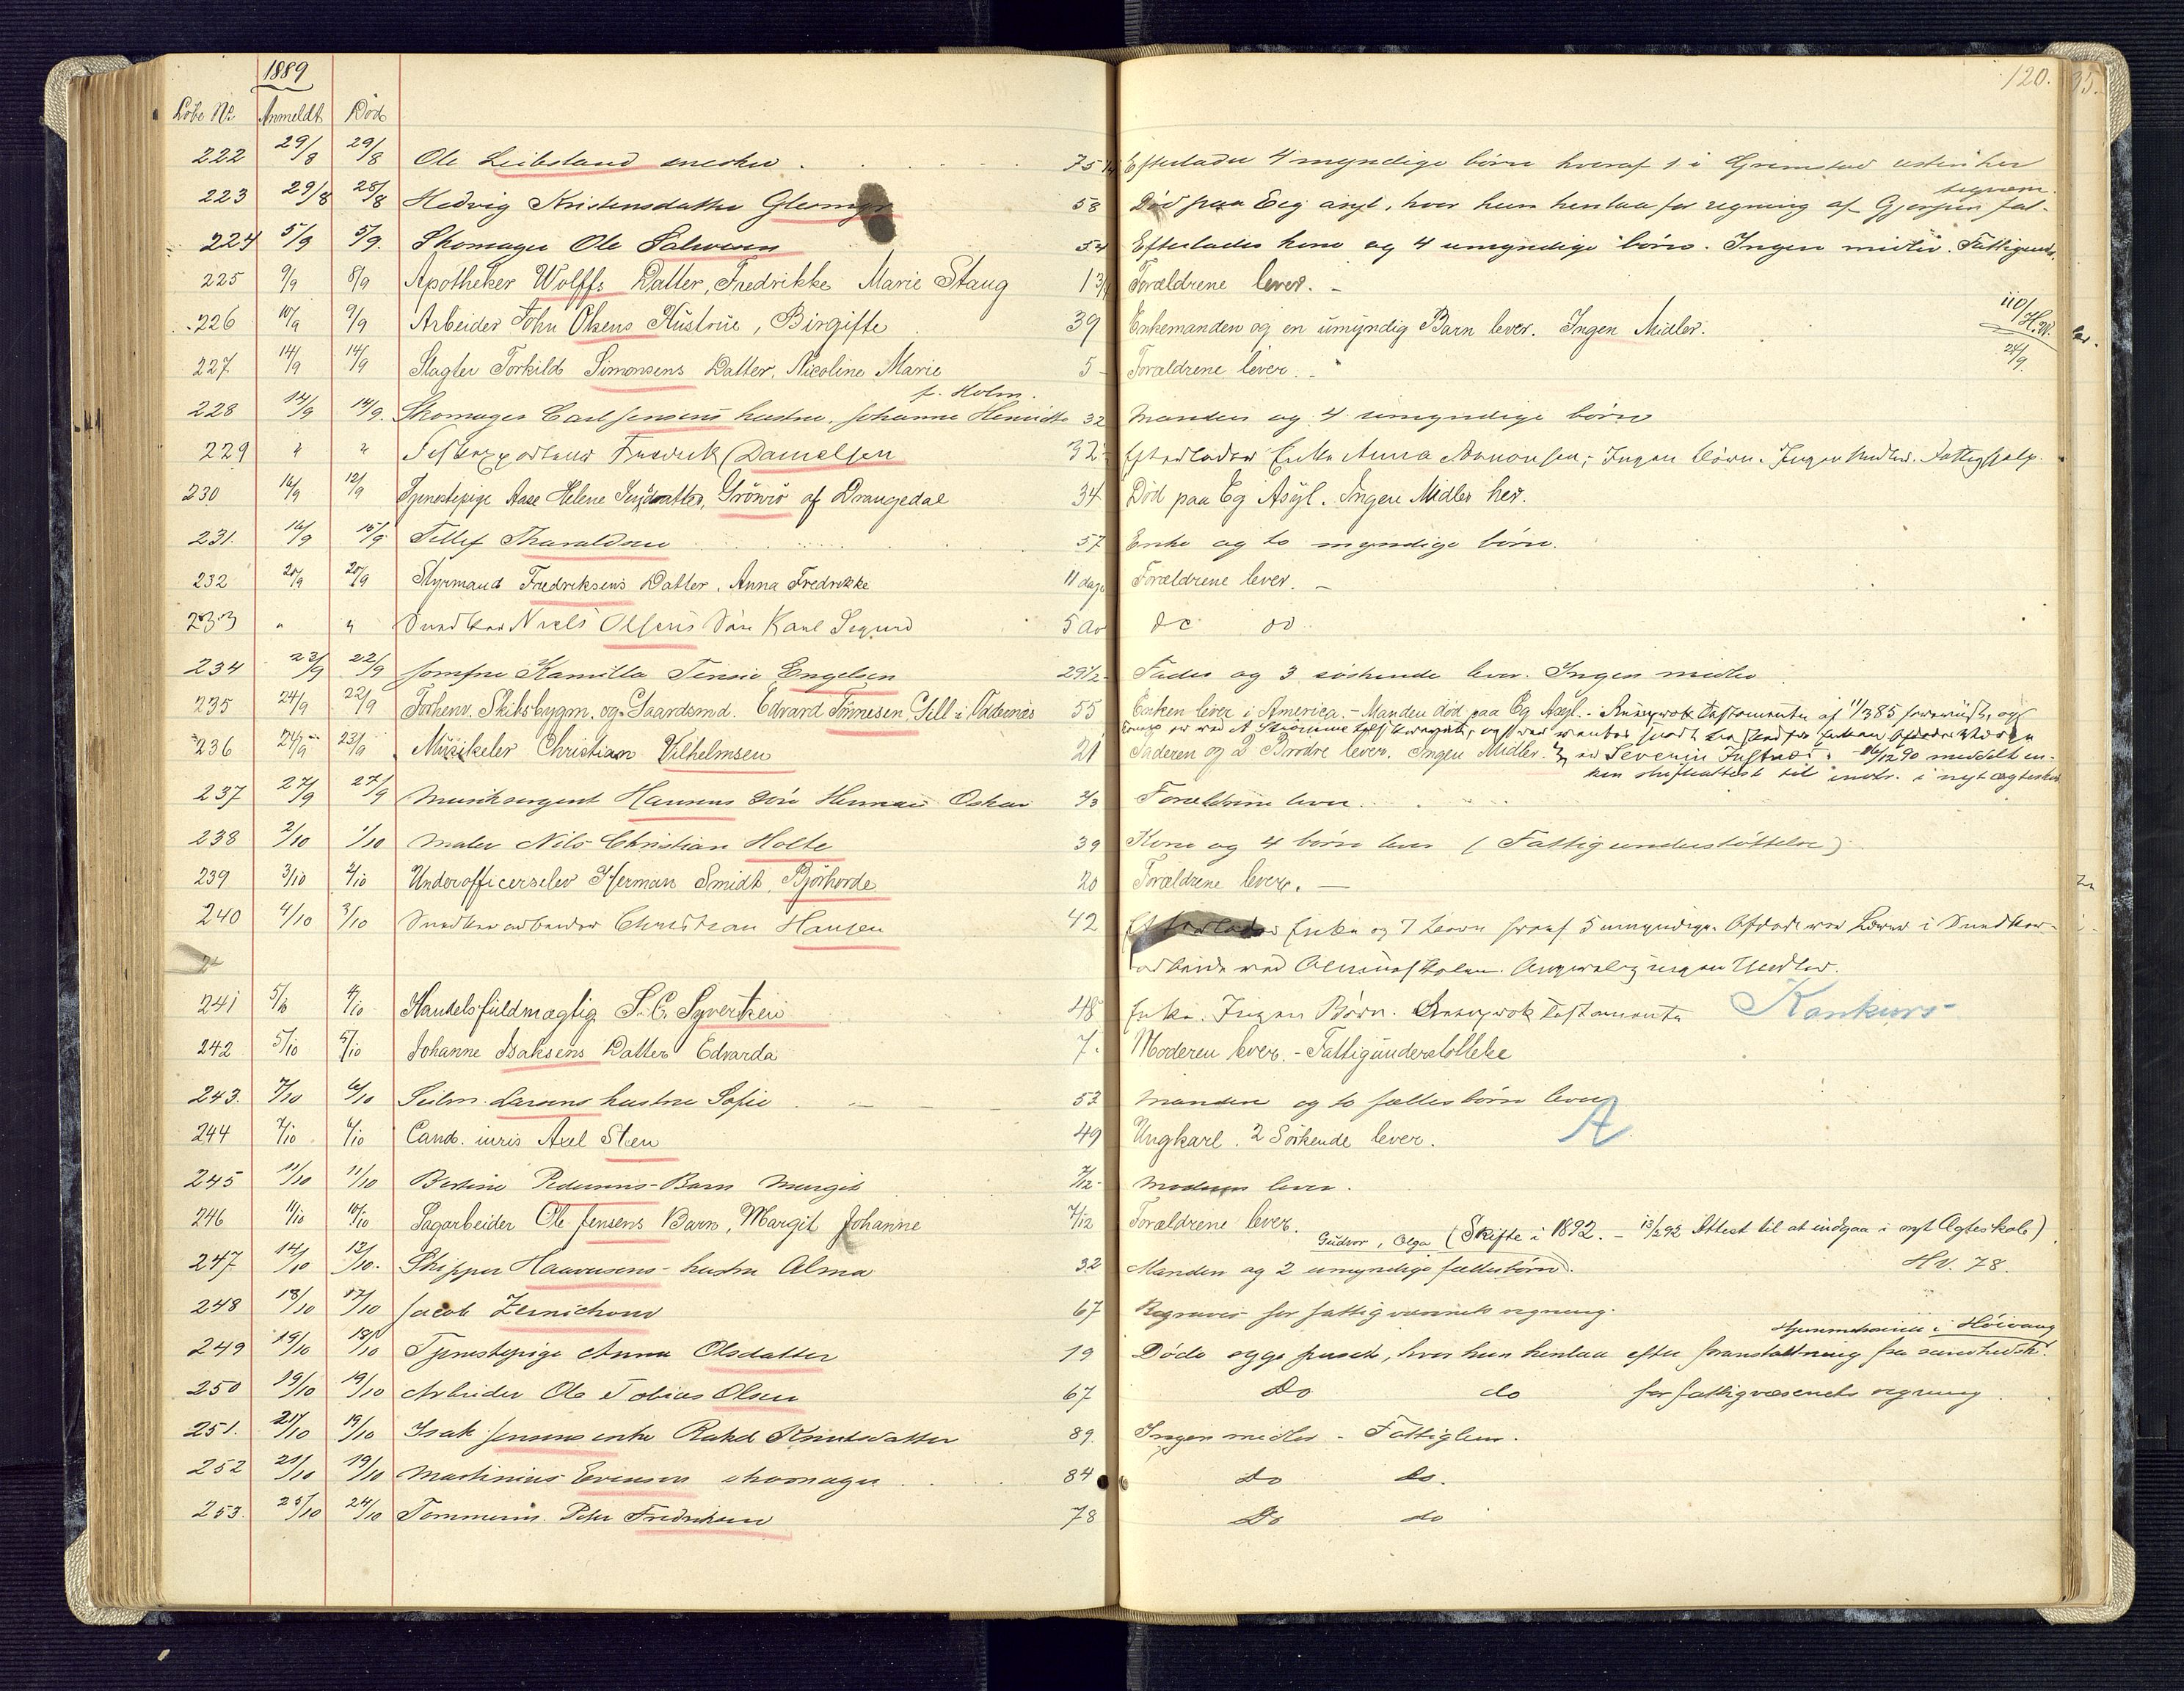 1889
120.
35.
Löbe No. Anmeldt Död
222 29/8 29/8 Ole Leibsland snedker 75 Efterlader 4 myndige börn hvoraf 1 i Grimstad resten her
223 29/8 28/8 Hedvig Kristensdatter 58 Død paa Eeg asyl, hvor hun henlaa for regning af Gjerpen fat-
tigvæsen.
224 5/9 5/9. Skomager Ole Salvesen 54 Efterlader kone og 4 umyndige börn. Ingen midler. Fattigund.
225 9/9 8/9 Apotheker Wolffs Datter, Fredrikke Marie Staug 1 3/4 Forældrene lever. –
226 10/9 9/9 Arbeider John Olsens Hustrue, Birgitte 39 Enkemanden og en umyndig Barn lever. Ingen Midler. 110/H.W. 24/9.
227 14/9 14/9 Slagter Torkild Simonsens Datter, Nicoline Marie 5 – Forældrene lever. –
f. Holm.
228 14/9 14/9. Skomager Carl Jensens hustru, Johanne Henriette 32 Manden og 4 umyndige börn
229 " " Fredrik Danielsen 32 Efterlader Enke Anna Aanonsen; Ingen Börn. Ingen Midler. Fattighjelp.
230 16/9 12/9 Tjenestepige Aase Helene Grönvo af Drangedal 34 Död paa Eg Asyl. Ingen Midler her.
231. 16/9 15/9 Tellef Tharaldsen 57 Enke og to myndige börn.
232 20/9 20/9 Styrmand Fredriksens Datter, Anna Fredrikke 11 dage Forældrene lever. –
233 " " Niels Olsens Sön Karl Sigurd 5 do do
234 23/9 22/9 Jomfru Kamilla Tensie Engelsen 29 1/2 Fader og 3 söskende lever. Ingen midler
235 24/9 22/9 Forhenv. Skibsbygm. og Gaardsmd. Edvard Tönnesen, Gill i Oddernæs 55 Enken lever i America. – Manden död paa Eg Asyl. – Testamente af 11/3 85
236 24/9 23/9 Musikelev Christian Vilhelmsen 21 Faderen og 2 Brödre lever. Ingen Midler. Severin – 16/12 90 meddelt en-
ken skifteattest til indtr. i nyt ægteskab
237 27/9 27/9 Musiksergent Hansens sön Herman Oskar 2/3 Forældrene lever.
238 2/10 1/10 Maler Nils Christian Holte 39 Kone og 4 börn lever (Fattigunderstöttelse)
239 3/10 2/10 Underofficerselev Herman Smidt, Björhorde 20 Forældrene lever. –
240 4/10 3/10 Christian Hansen 42 Efterlader Enke og 7 Börn hvoraf 5 umyndige. Afdöde var i
Ingen Midler.
241 5/10 4/10 Handelsfuldmægtig S. C. Syvertsen 48 Enke. Ingen Börn. Testamente Konkurs
242 5/10 5/10 Johanne Isaksens Datter Edvarda 7. Moderen lever. – Fattigunderstöttelse
243. 7/10 6/10 Seilm. Larsens hustru Sofie 53 Manden og to fællesbörn lever
244 7/10 6/10 Cand. iuris Axel Steen 49 Ungkarl. 2 Söskende lever. A
245 11/10 11/10 Bertine Pedersens Barn Margit 7/12 Moderen lever.
246 11/10 10/10 Sagarbeider Ole Jensens Barn, Margit Johanne 7/12 Forældrene lever.
Gudvor, Olga (Skifte i 1892. – 13/2 92 Attest til at indgaa i nyt Ægteskab)
247 14/10 12/10. Skipper Haavesens hustru Alma 32 Manden og 2 umyndige fællesbörn. HV. 78.
248 18/10 17/10 Jacob Zernichow 67 Begraves for fattigvæsnets regning.
Hjemmehörende i Höivaag
249 19/10 18/10 Tjenestepige Anna Olsdatter 19 Döde hvor hun henlaa efter foranstaltning fra sundhedsk.
250 19/10 19/10 Arbeider Ole Tobias Olsen 67 Do do for fattigvæsenets regning
251. 21/10 19/10 Isak Jensens enke Rakel Knudsdatter 89. Ingen midler – Fattiglem.
252 21/10 19/10 Martinius Evensen skomager 84 Do do.
253. 25/10 24/10 Tömmerm. Peter Fredriksen 78 Do do